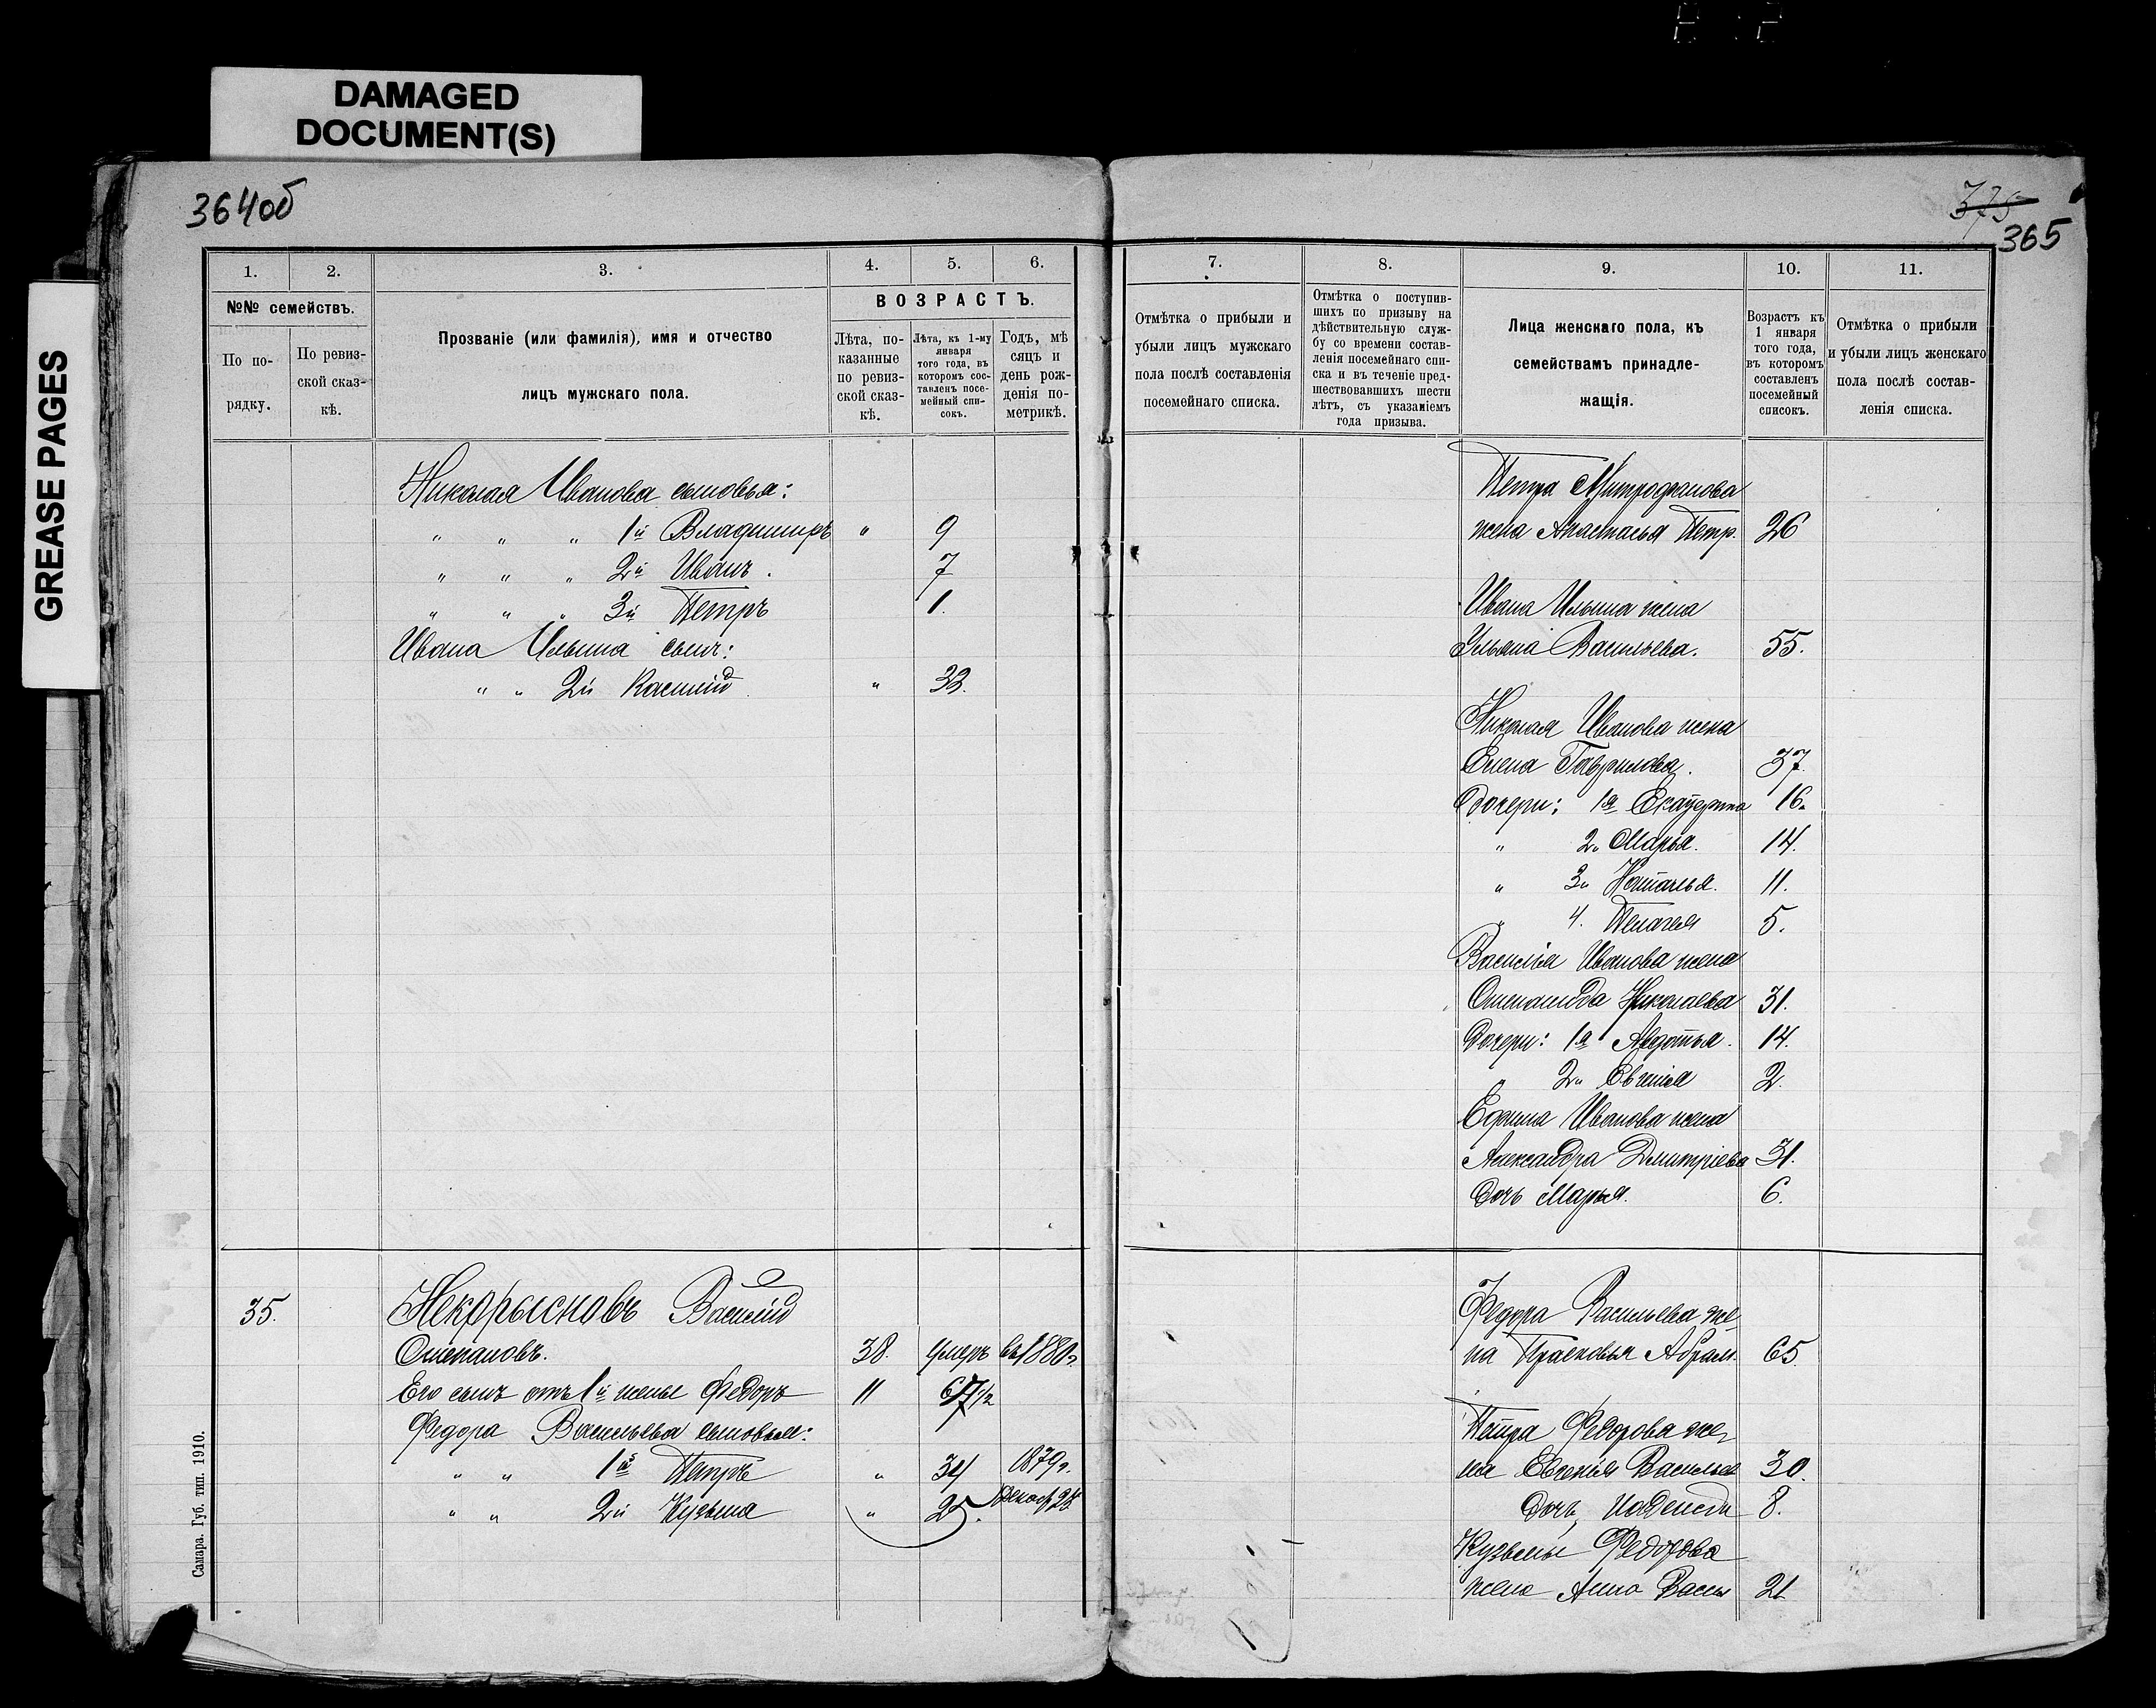 DAMAGED
DOCUMENT(S)
GREASE PAGES
364об
1.
2.
3.
4.
5.
6.
№№ семействъ.
По по-
рядку.
По ревиз-
ской сказ-
кѣ.
Прозваніе (или фамилія), имя и отчество
лицъ мужскаго пола.
ВОЗРАСТЪ.
Лѣта, по-
казанные
по ревиз-
ской сказ-
кѣ.
Лѣта, къ 1-му
января
того года, въ
которомъ сос-
тавленъ посе-
мейный спи-
сокъ.
Годъ, мѣ
сяцъ и
день рож-
денія по-
метрикѣ.
Николая Иванова сыновья:
" " " 1й Владимиръ " 9
" " " 2й Иванъ . 7
" " " 3й Петръ 1.
Ивана Ильина сынъ:
" " 2й " 33.
35. Василій
Степановъ. 38. умеръ въ 1880г.
Его сынъ отъ 1й жены Федоръ 11 67 1/2
Федора Васильева сыновья:
" " 1й Петръ " 34 1879г.
" " 2й Кузьма " 25.
Самара. Губ. тип. 1910.
375
365
7.
8.
9.
10.
11.
Отмѣтка о прибыли и
убыли лицъ мужскаго
пола послѣ составленія
посемейнаго списка.
Отмѣтка о поступив-
шихъ по призыву на
дѣйствительную служ-
бу со времени состав-
ленія посемейнаго спи-
ска и въ теченіе пред-
шествовавшихъ шести
лѣтъ, съ указаніемъ
года призыва.
Лица женскаго пола, къ
семействамъ принадле-
жащія.
Возрастъ къ
1 января
того года,
въ которомъ
составленъ
посемейный
списокъ.
Отмѣтка о прибыли
и убыли лицъ женскаго
пола послѣ состав-
ленія списка.
Петра Митрофанова
жена Анастасья Петр. 26
Ивана Ильина жена
Ульяна Васильева. 55.
Николая Иванова жена
Елена Гаврилова. 37.
Дочери: 1я Екатерина 16.
" 2я Марья. 14.
" 3я Наталья. 11.
" 4. Пелагея 5.
Василія Иванова жена
Степанида Николаева 31.
Дочери: 1я Авдотья. 14.
" 2я Евгенія 2.
Ефима Иванова жена
Александра Дмитріева 31.
Дочь Марья. 6.
Федора Васильева же-
на Прасковья Абрам. 65.
Петра Федорова же-
на Евгенія Васильев 30.
Дочь 8.
Кузьмы Федорова
жена Анна Васил 21